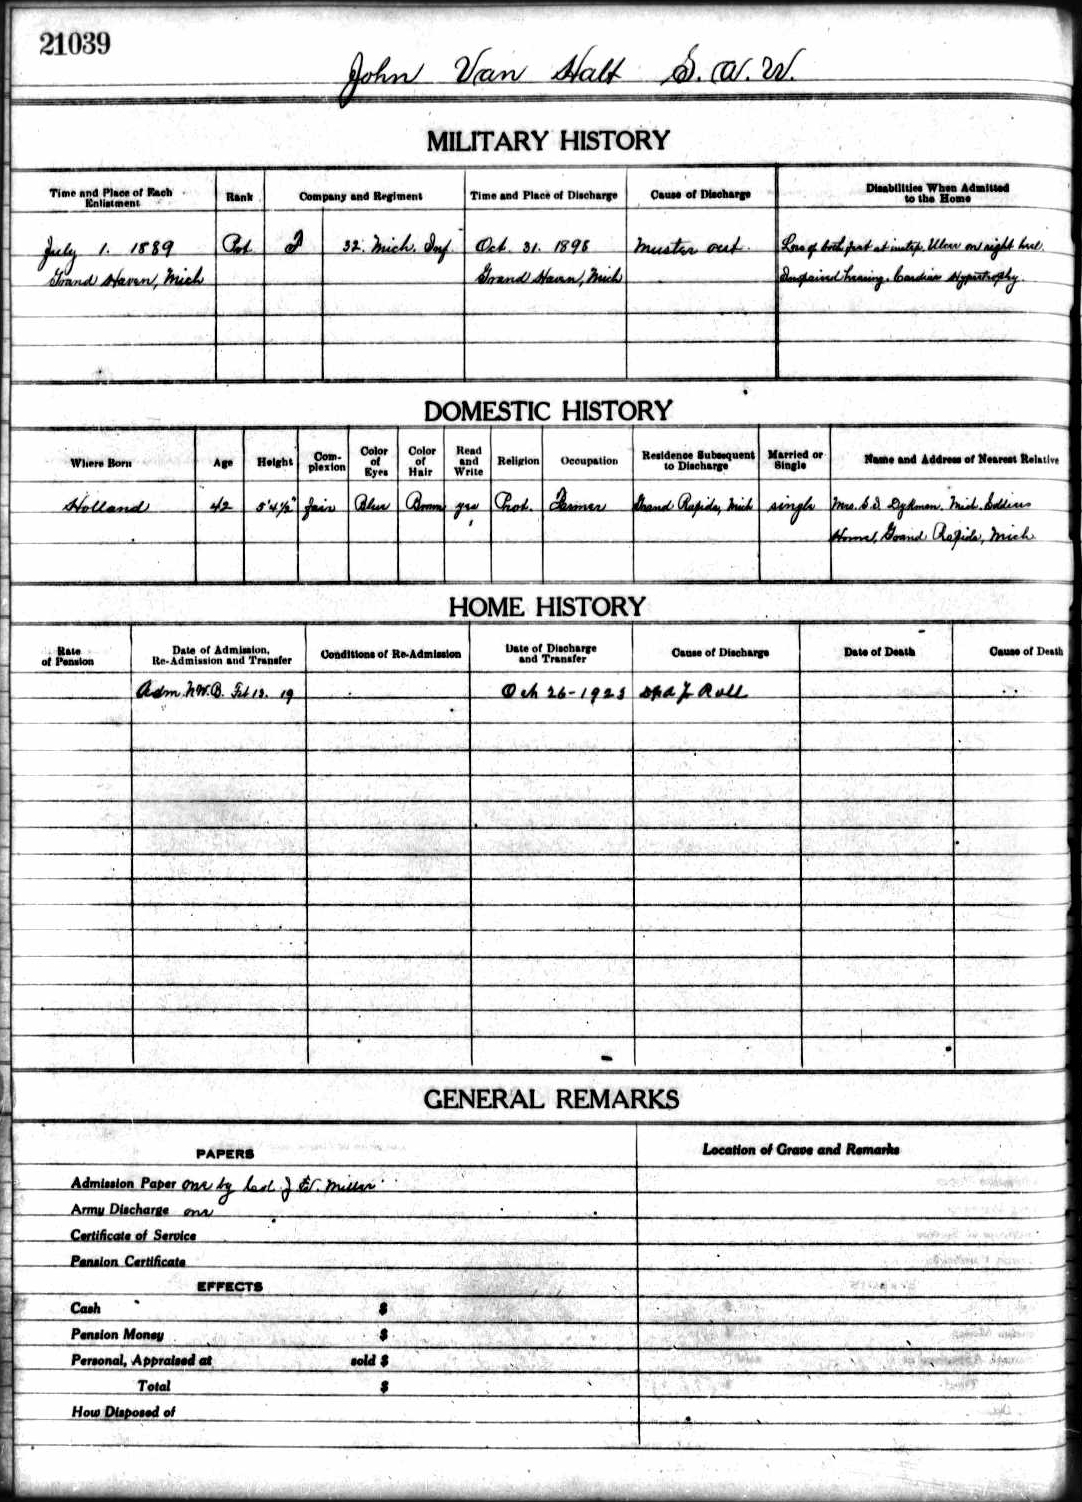 21039
John Van Halt S. A. W.
MILITARY HISTORY
Time and Place of Each Enlistment
Rank
Company and Regiment
Time and Place of Discharge
Cause of Discharge
Disabilities When Admitted to the Home
July 1. 1889 Pvt F 32 Mich. Inf. Oct. 31. 1898 Muster out. Loss of both feet at instep. Ulcer on right heel.
Grand Haven, Mich Grand Haven, Mich Impaired hearing. Cardiac Hypertrophy.
DOMESTIC HISTORY
Where Born
Age
Height
Complexion
Color of Eyes
Color of Hair
Read and Write
Religion
Occupation
Residence Subsequent to Discharge
Married or Single
Name and Address of Nearest Relative
Holland 42 5'4½" fair Blue Brown yes Prot. Farmer Grand Rapids, Mich single Mrs. Dykman. Mich. Soldiers
Home, Grand Rapids, Mich
HOME HISTORY
Rate of Pension
Date of Admission, Re-Admission and Transfer
Conditions of Re-Admission
Date of Discharge and Transfer
Cause of Discharge
Date of Death
Cause of Death
Adm. N.W.B. Feb 12. 19 Oct 26-1923 Roll
GENERAL REMARKS
PAPERS
Location of Grave and Remarks
Admission Paper one by Col. J. W. Miller
Army Discharge one
Certificate of Service
Pension Certificate
EFFECTS
Cash $
Pension Money $
Personal, Appraised at sold $
Total $
How Disposed of